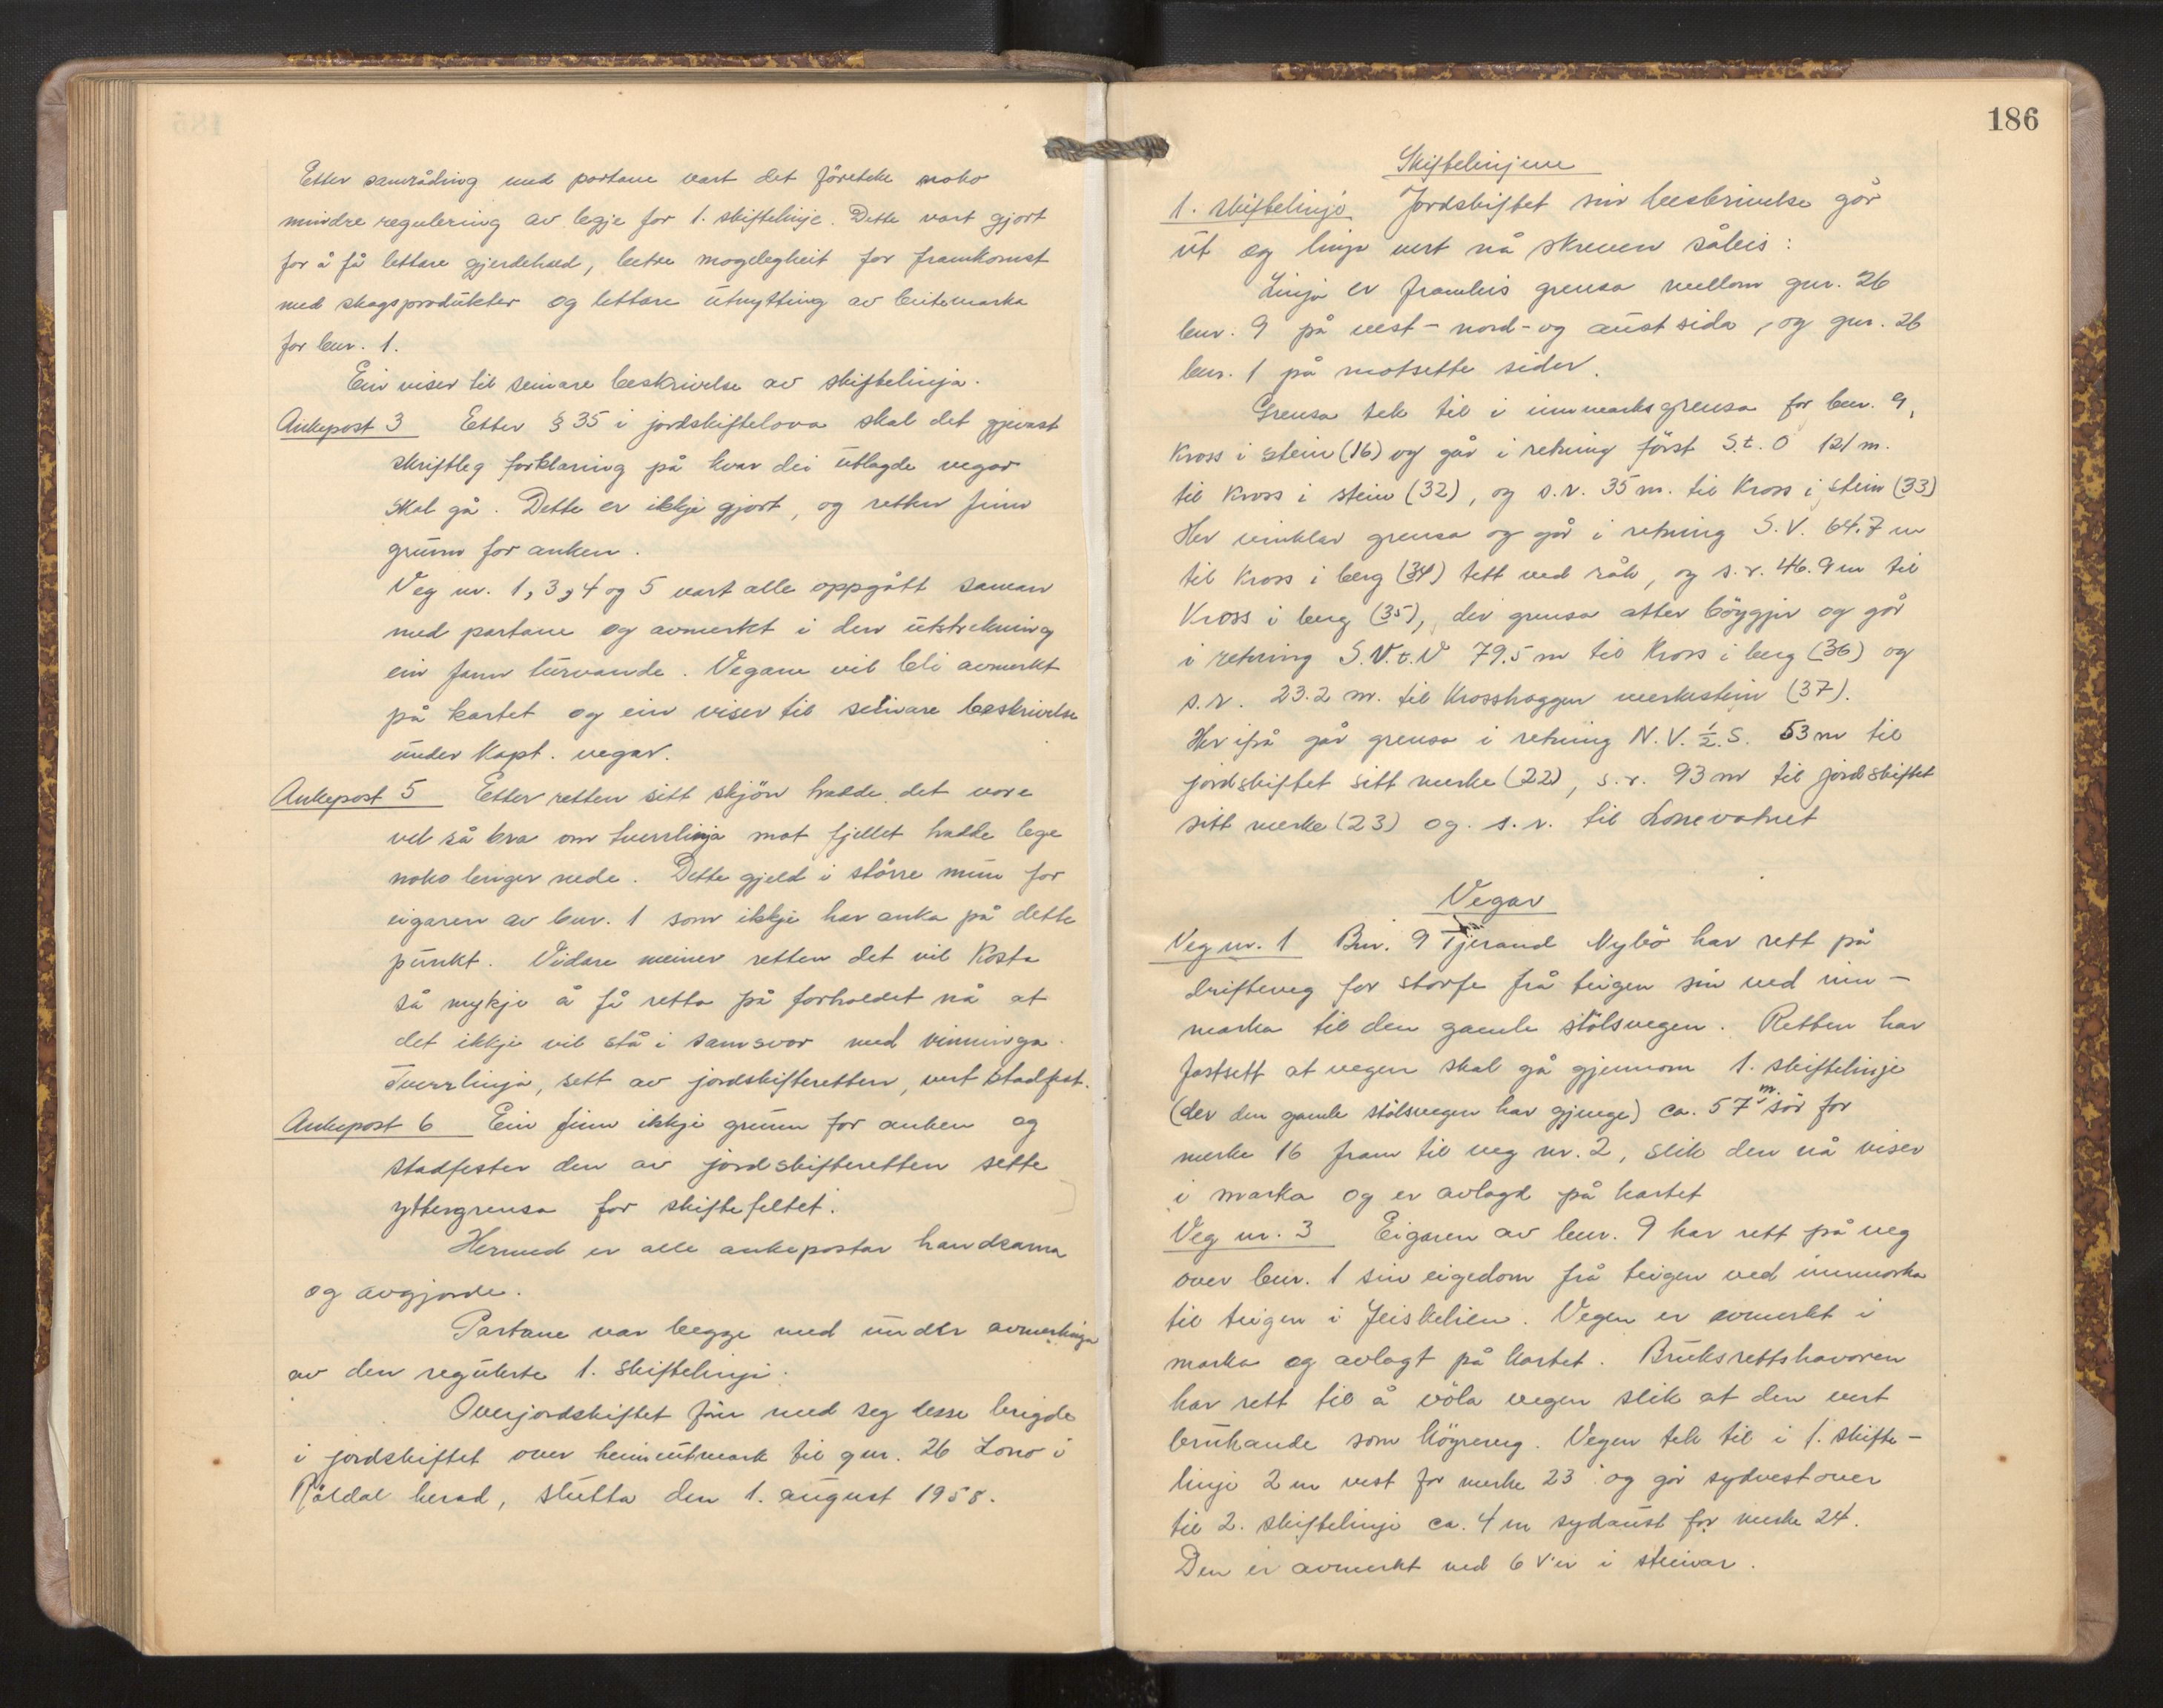 Etter samråding med partane vart det företeke noko
mindre regulering av legje for 1. skiftelinje. Dette vart gjort
for å få lettare gjerdehald, betre mogelegheit for framkomst
med skogsprodukter og lettare utnytting av beitemarka
for bnr. 1.
Ein viser til seinare beskrivelse av skiftelinja.
Ankepost 3 Etter § 35 i jordskiftelova skal det gjevast
skriftleg forklaring på kvar dei utlagde vegar
skal gå. Dette er ikkje gjort, og retten finn
grunn for anken.
Veg nr. 1, 3, 4 og 5 vart alle oppgått saman
med partane og avmerkt i den utstrekning
ein fann turvande. Vegane vil bli avmerkt
på kartet og ein viser til seinare beskrivelse
under Kapt. vegar.
Ankepost 5 Etter retten sitt skjön hadde det vore
vel så bra om tverrlinja mot fjellet hadde lege
noko lenger nede. Dette gjeld i större mun for
eigaren av bnr. 1 som ikkje har anka på dette
punkt. Vidare meiner retten det vil kosta
så mykje å få retta på forholdet nå at
det ikkje vil stå i samsvar med vinninga.
Tverrlinja, sett av jordskifteretten, vert stadfest.
Ankepost 6 Ein finn ikkje grunn for anken og
stadfester den av jordskifteretten sette
yttergrensa for skiftefeltet.
Hermed er alle ankepostar handsama
og avgjorde.
Partane var begge med under avmerkinga
av den regulerte 1. skiftelinje.
Overjordskiftet förer med seg desse brigde
i jordskiftet over heimeutmark til gnr. 26 Lono i
Röldal herad, slutta den 1. august 1958.
186
Skiftelinjene
1. skiftelinje Jordskiftet sin beskrivelse går
ut og linja vert nå skreven såleis:
Linja er framleis grensa mellom gnr. 26
bnr. 9 på vest- nord- og austsida, og gnr. 26
bnr. 1 på motsette sider.
Grensa tek til i innmarksgrensa for bnr. 9,
Kross i stein (16) og går i retning först S.t.O 121 m.
til Kross i stein (32), og s.r. 35 m. til Kross i stein (33)
Her vinklar grensa og går i retning S.V. 64.7 m
til Kross i berg (34) tett ved råk, og s.r. 46.9 m til
Kross i berg (35), der grensa atter böyggjer og går
i retning S.V.t.V 79.5 m til Kross i berg (36) og
s.r. 23.2 m. til Krosshoggen merkestein (37).
Her ifrå går grensa i retning N.V. ½ S. 53 m til
jordskiftet sitt merke (22), s.r. 93 m til jordskiftet
sitt merke (23) og s.r. til Lonevatnet
Vegar
Veg nr. 1 Bnr. 9 Tjerand Nybö har rett på
drifteveg for storfe frå teigen sin ved inn-
marka til den gamle stölsvegen. Retten har
fastsett at vegen skal gå gjennom 1. skiftelinje
(der den gamle stölsvegen har gjenge) ca. 57 m. sör for
merke 16 fram til veg nr. 2, slik den nå viser
i marka og er avlagd på kartet
Veg nr. 3 Eigaren av bnr. 9 har rett på veg
over bnr. 1 sin eigedom frå teigen ved innmarka
til teigen i Jeiskelien. Vegen er avmerkt i
marka og avlagt på kartet. Bruksrettshavaren
har rett til å völa vegen slik at den vert
brukande som höyreveg. Vegen tek til i 1. skifte-
linje 2 m vest for merke 23 og går sydvestover
til 2. skiftelinje ca. 4 m sydaust for merke 24.
Den er avmerkt ved 6 V'er i steinar.